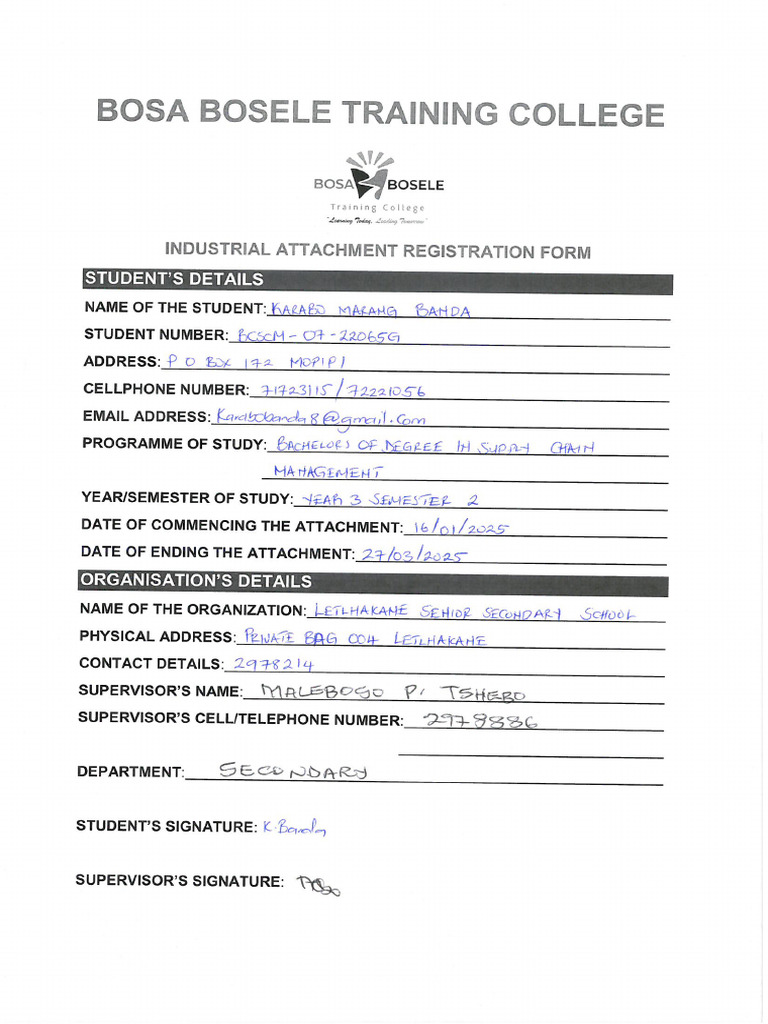 BOSA BOSELE TRAINING COLLEGE
BOSA BOSELE
Training College
"Learning Today, Leading Tomorrow"
INDUSTRIAL ATTACHMENT REGISTRATION FORM
STUDENT'S DETAILS
NAME OF THE STUDENT: KARABO MARANG BANDA
STUDENT NUMBER: BCSCM-07-22065G
ADDRESS: P O BOX 172 MOPIPI
CELLPHONE NUMBER: 71723115/72221056
EMAIL ADDRESS: Karabobanda8@gmail.com
PROGRAMME OF STUDY: BACHELORS OF DEGREE IN SUPPLY CHAIN
MANAGEMENT
YEAR/SEMESTER OF STUDY: YEAR 3 SEMESTER 2
DATE OF COMMENCING THE ATTACHMENT: 16/01/2025
DATE OF ENDING THE ATTACHMENT: 27/03/2025
ORGANISATION'S DETAILS
NAME OF THE ORGANIZATION: LETLHAKANE SENIOR SECONDARY SCHOOL
PHYSICAL ADDRESS: PRIVATE BAG 004 LETLHAKANE
CONTACT DETAILS: 2978214
SUPERVISOR'S NAME: MALEBOGO P. TSHEBO
SUPERVISOR'S CELL/TELEPHONE NUMBER: 2978886
DEPARTMENT: SECONDARY
STUDENT'S SIGNATURE: K.Banda
SUPERVISOR'S SIGNATURE: